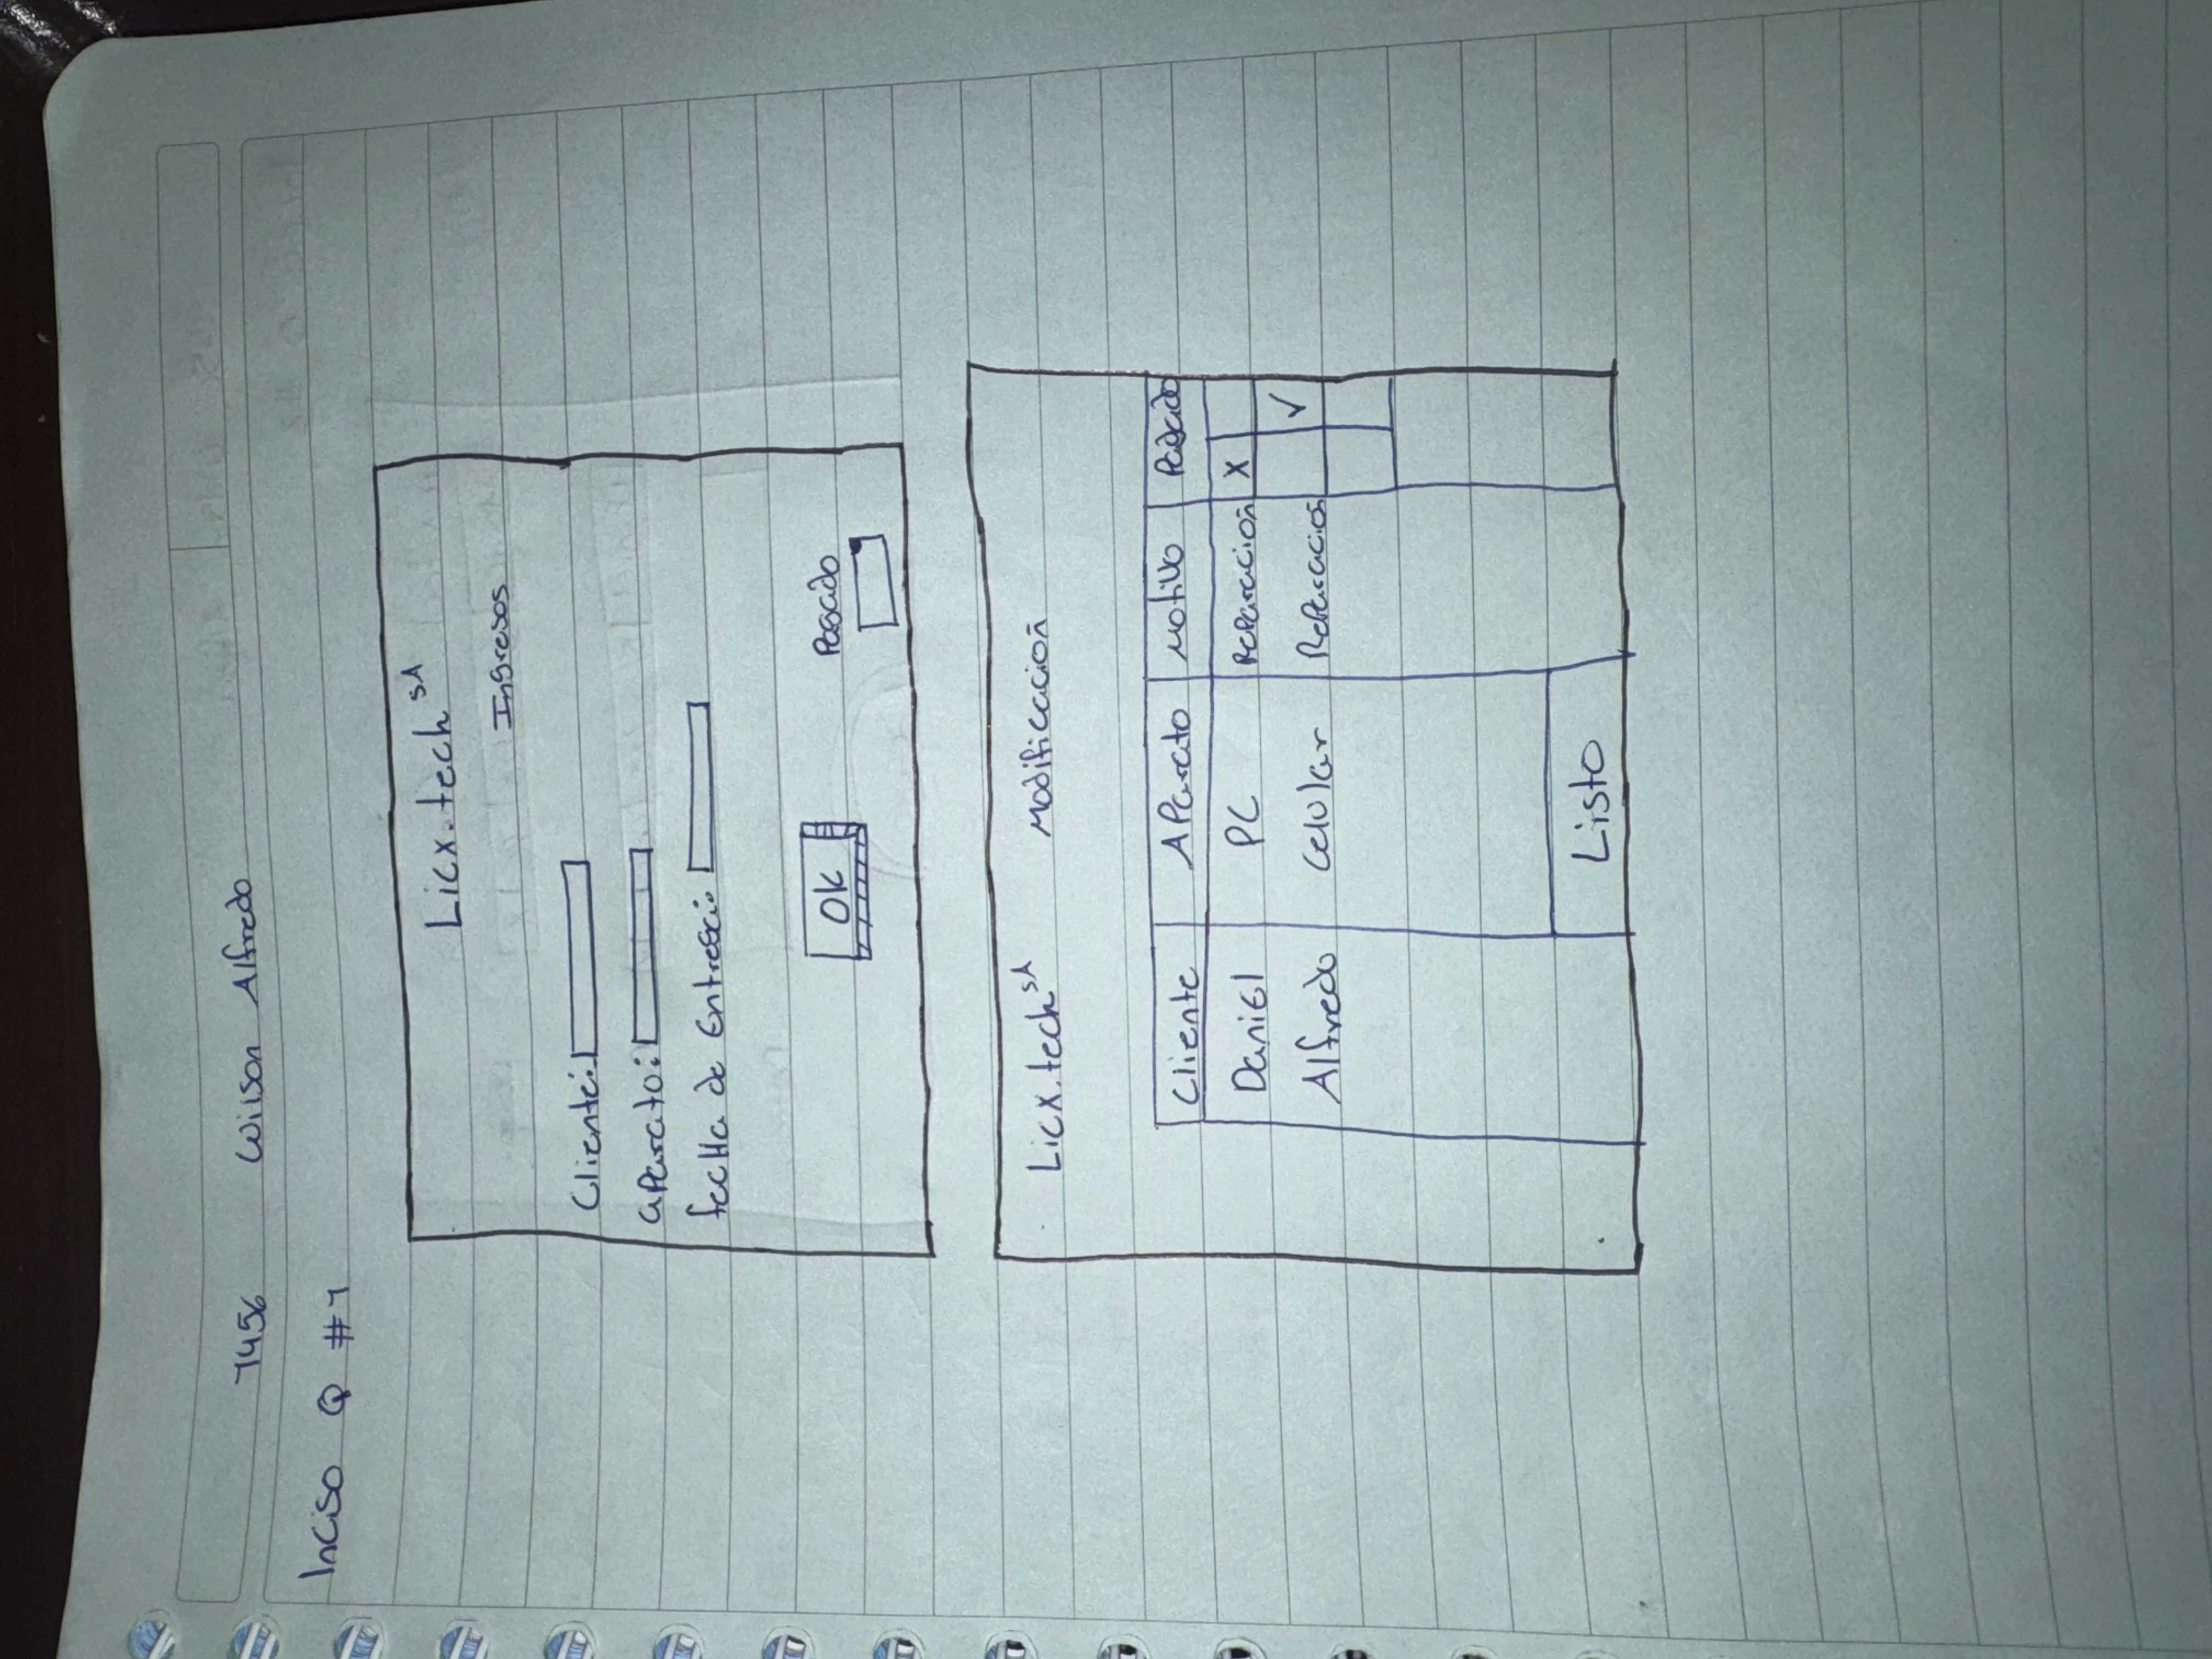 7456 Wilson Alfredo
Inciso a #1
Licx.tech SA
Ingresos
Cliente:
aparato:
fecha de Entrega:
OK
Pagado
Licx.tech SA Modificación
Cliente Aparato Motivo Pagado
Daniel PC Reparación X
Alfredo Celular Reparación ✓
Listo